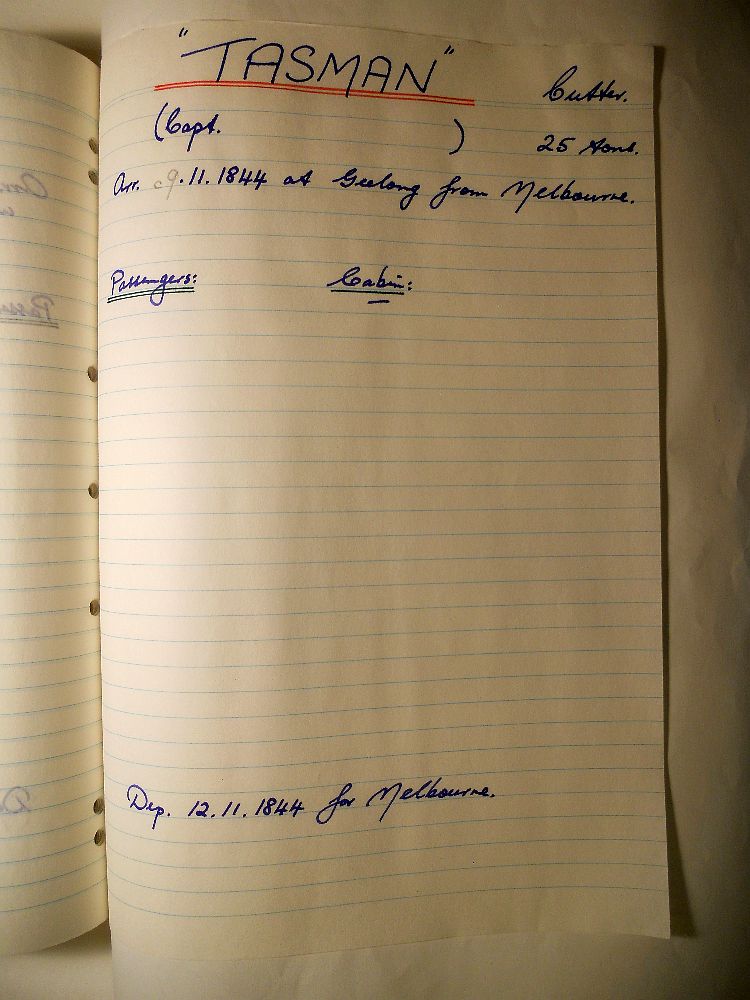 "TASMAN"
Cutter.
(Capt. )
25 tons.
Arr. c9.11.1844 at Geelong from Melbourne.
Passengers: Cabin:
Dep. 12.11.1844 for Melbourne.